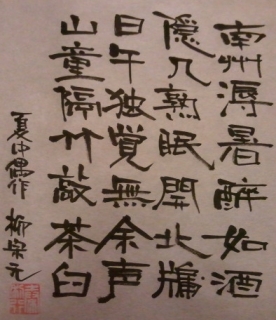 南州溽暑醉如酒
隐几熟眠開北牖
日午独覚無余声
山童隔竹敲茶臼
夏中偶作 柳宗元